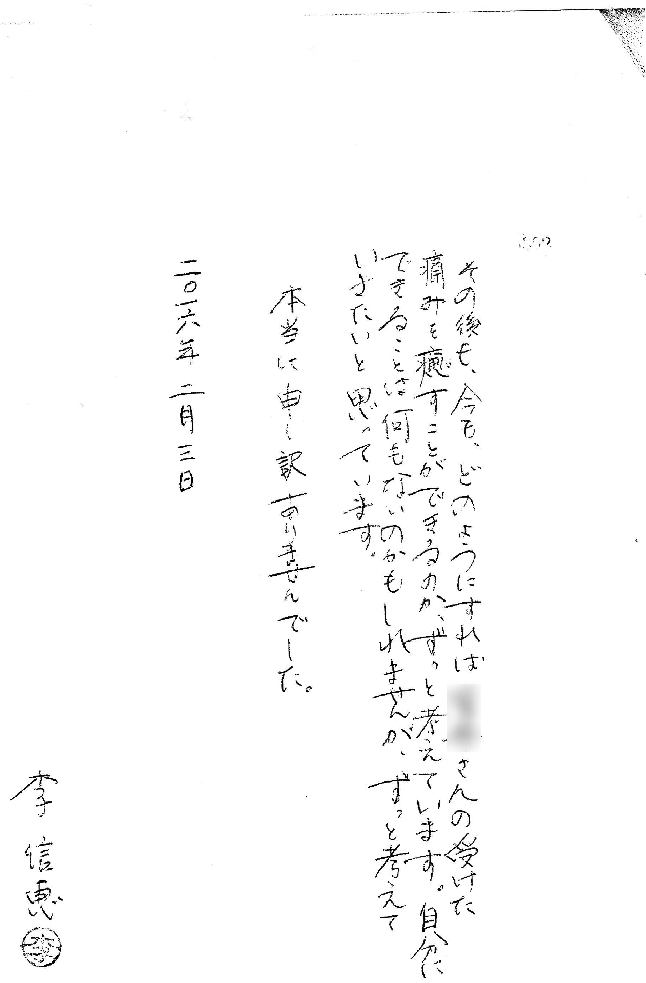 その後も、今も、どのようにすれば さんの受けた
痛みを癒すことができるのか、ずっと考えています。自分に
できることは何もないのかもしれませんが、ずっと考えて
いきたいと思っています。
本当に申し訳ありませんでした。
二〇一六年 二月三日
李信恵
李